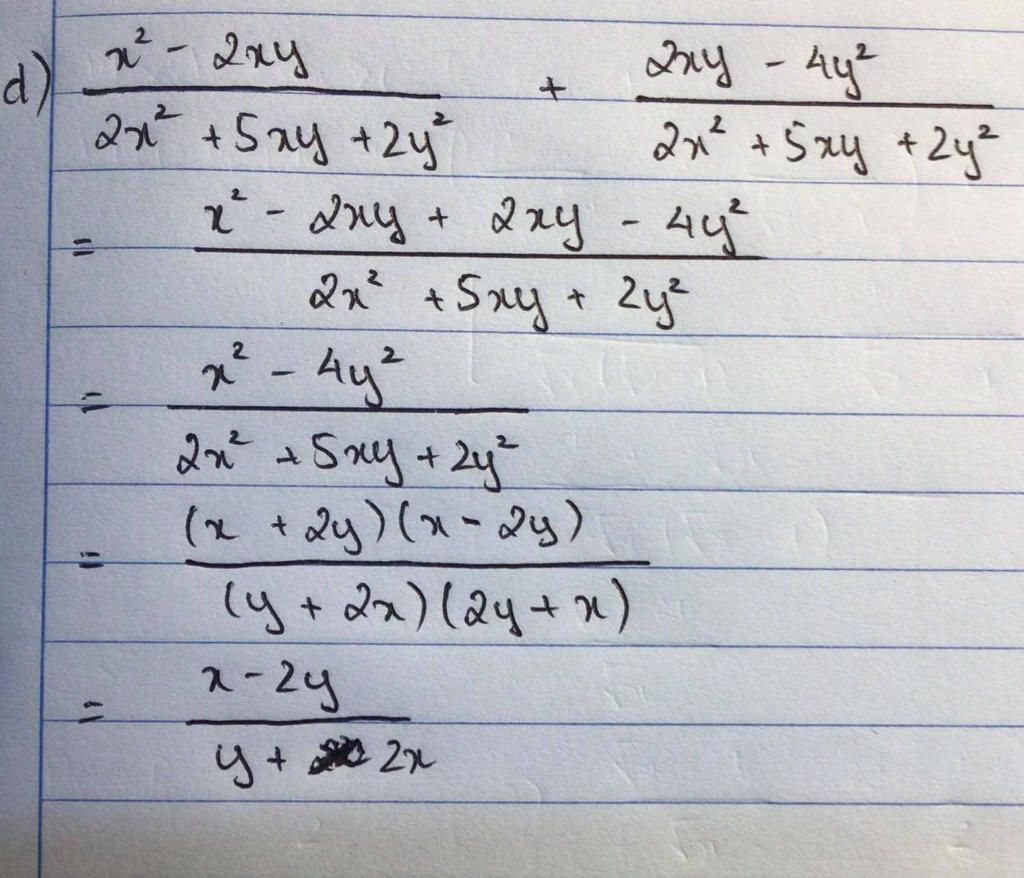 d) x² - 2xy / 2x² + 5xy + 2y² + 2xy - 4y² / 2x² + 5xy + 2y²
= x² - 2xy + 2xy - 4y² / 2x² + 5xy + 2y²
= x² - 4y² / 2x² + 5xy + 2y²
= (x + 2y)(x - 2y) / (y + 2x)(2y + x)
= x - 2y / y + 2x